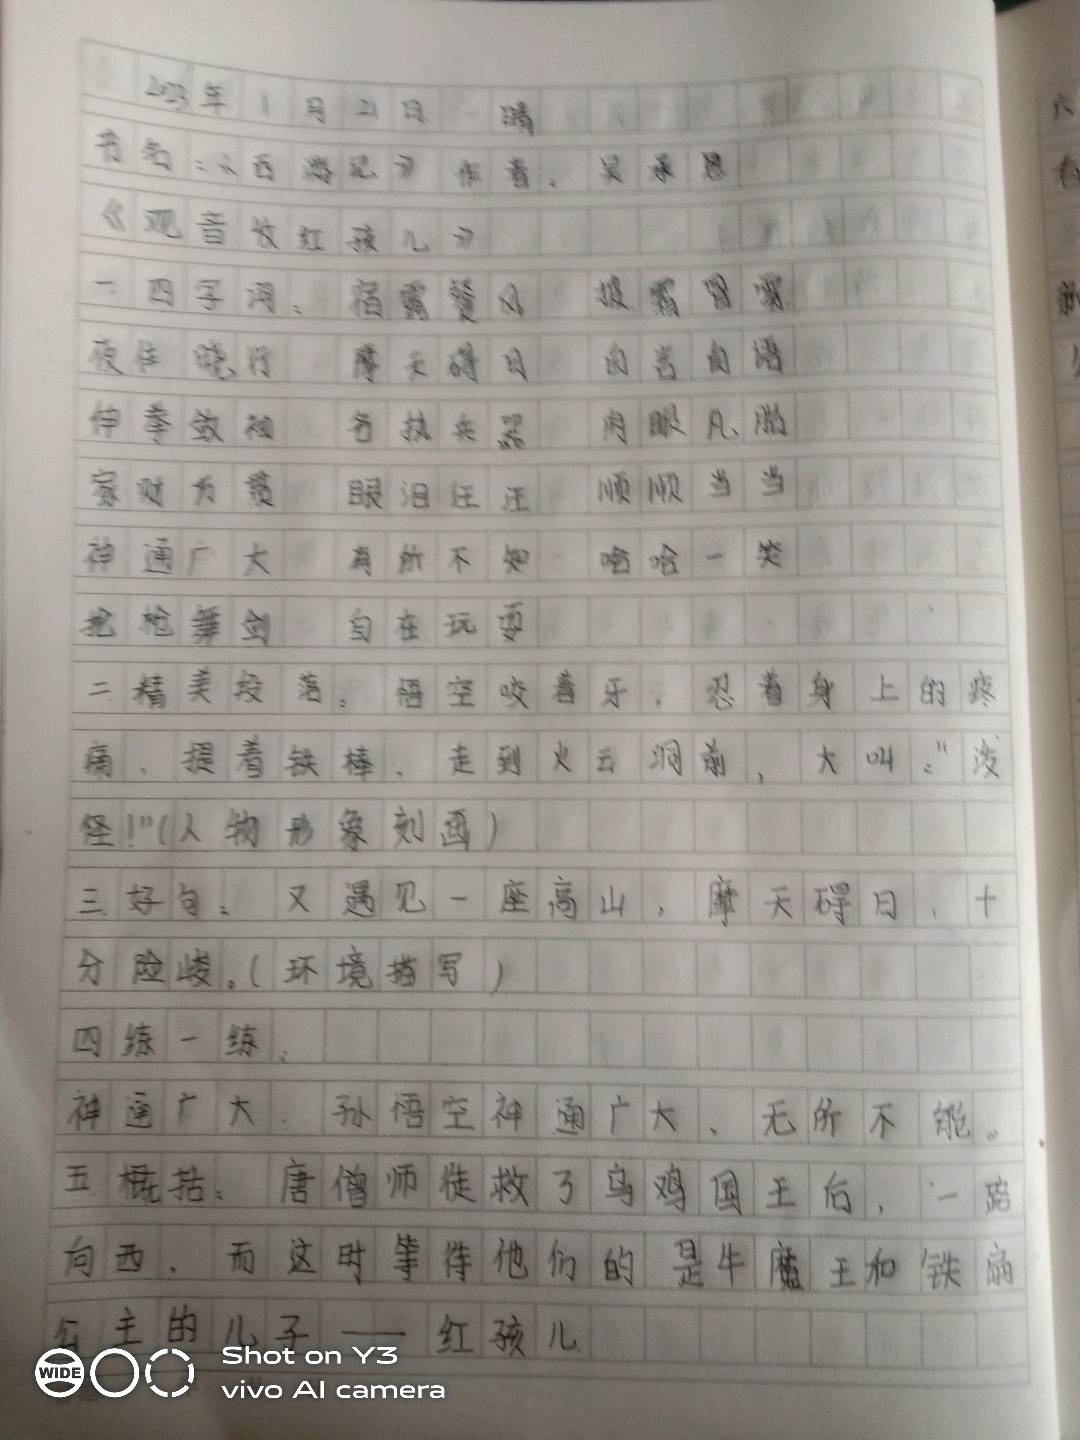 2023年1月21日 晴
书名：《西游记》作者：吴承恩
《观音收红孩儿》
一四字词：宿露餐风 披霜冒露
夜住晓行 摩天碍日 自言自语
伸拳敛袖 各执兵器 肉眼凡胎
家财万贯 眼泪汪汪 顺顺当当
神通广大 有所不知 哈哈一笑
抡枪舞剑 自在玩耍
二精美段落：悟空咬着牙，忍着身上的疼
痛，提着铁棒，走到火云洞前，大叫："泼
怪!"(人物形象刻画)
三好句：又遇见一座高山，摩天碍日，十
分险峻。(环境描写)
四练一练：
神通广大：孙悟空神通广大、无所不能。
五概括：唐僧师徒救了乌鸡国王后，一路
向西，而这时等待他们的是牛魔王和铁扇
公主的儿子——红孩儿
WIDE Shot on Y3
vivo AI camera